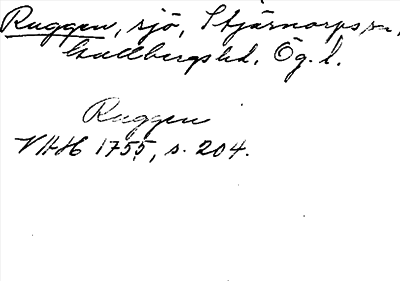 Ruggen, sjö, Stjärnorps sn,
Gullbergs hd, Ög. l.
Ruggen
VHH 1755, s. 204.